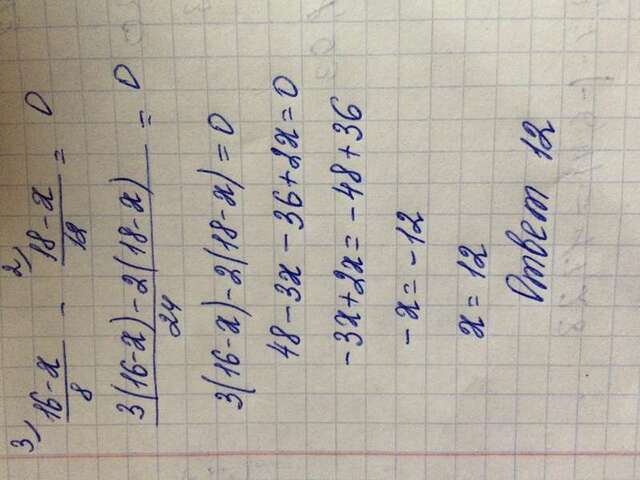 3) 2)
16-x/8 - 18-x/12 = 0
3(16-x)-2(18-x)/24 = 0
3(16-x)-2(18-x)=0
48-3x-36+2x=0
-3x+2x=-48+36
-x=-12
x=12
Ответ 12